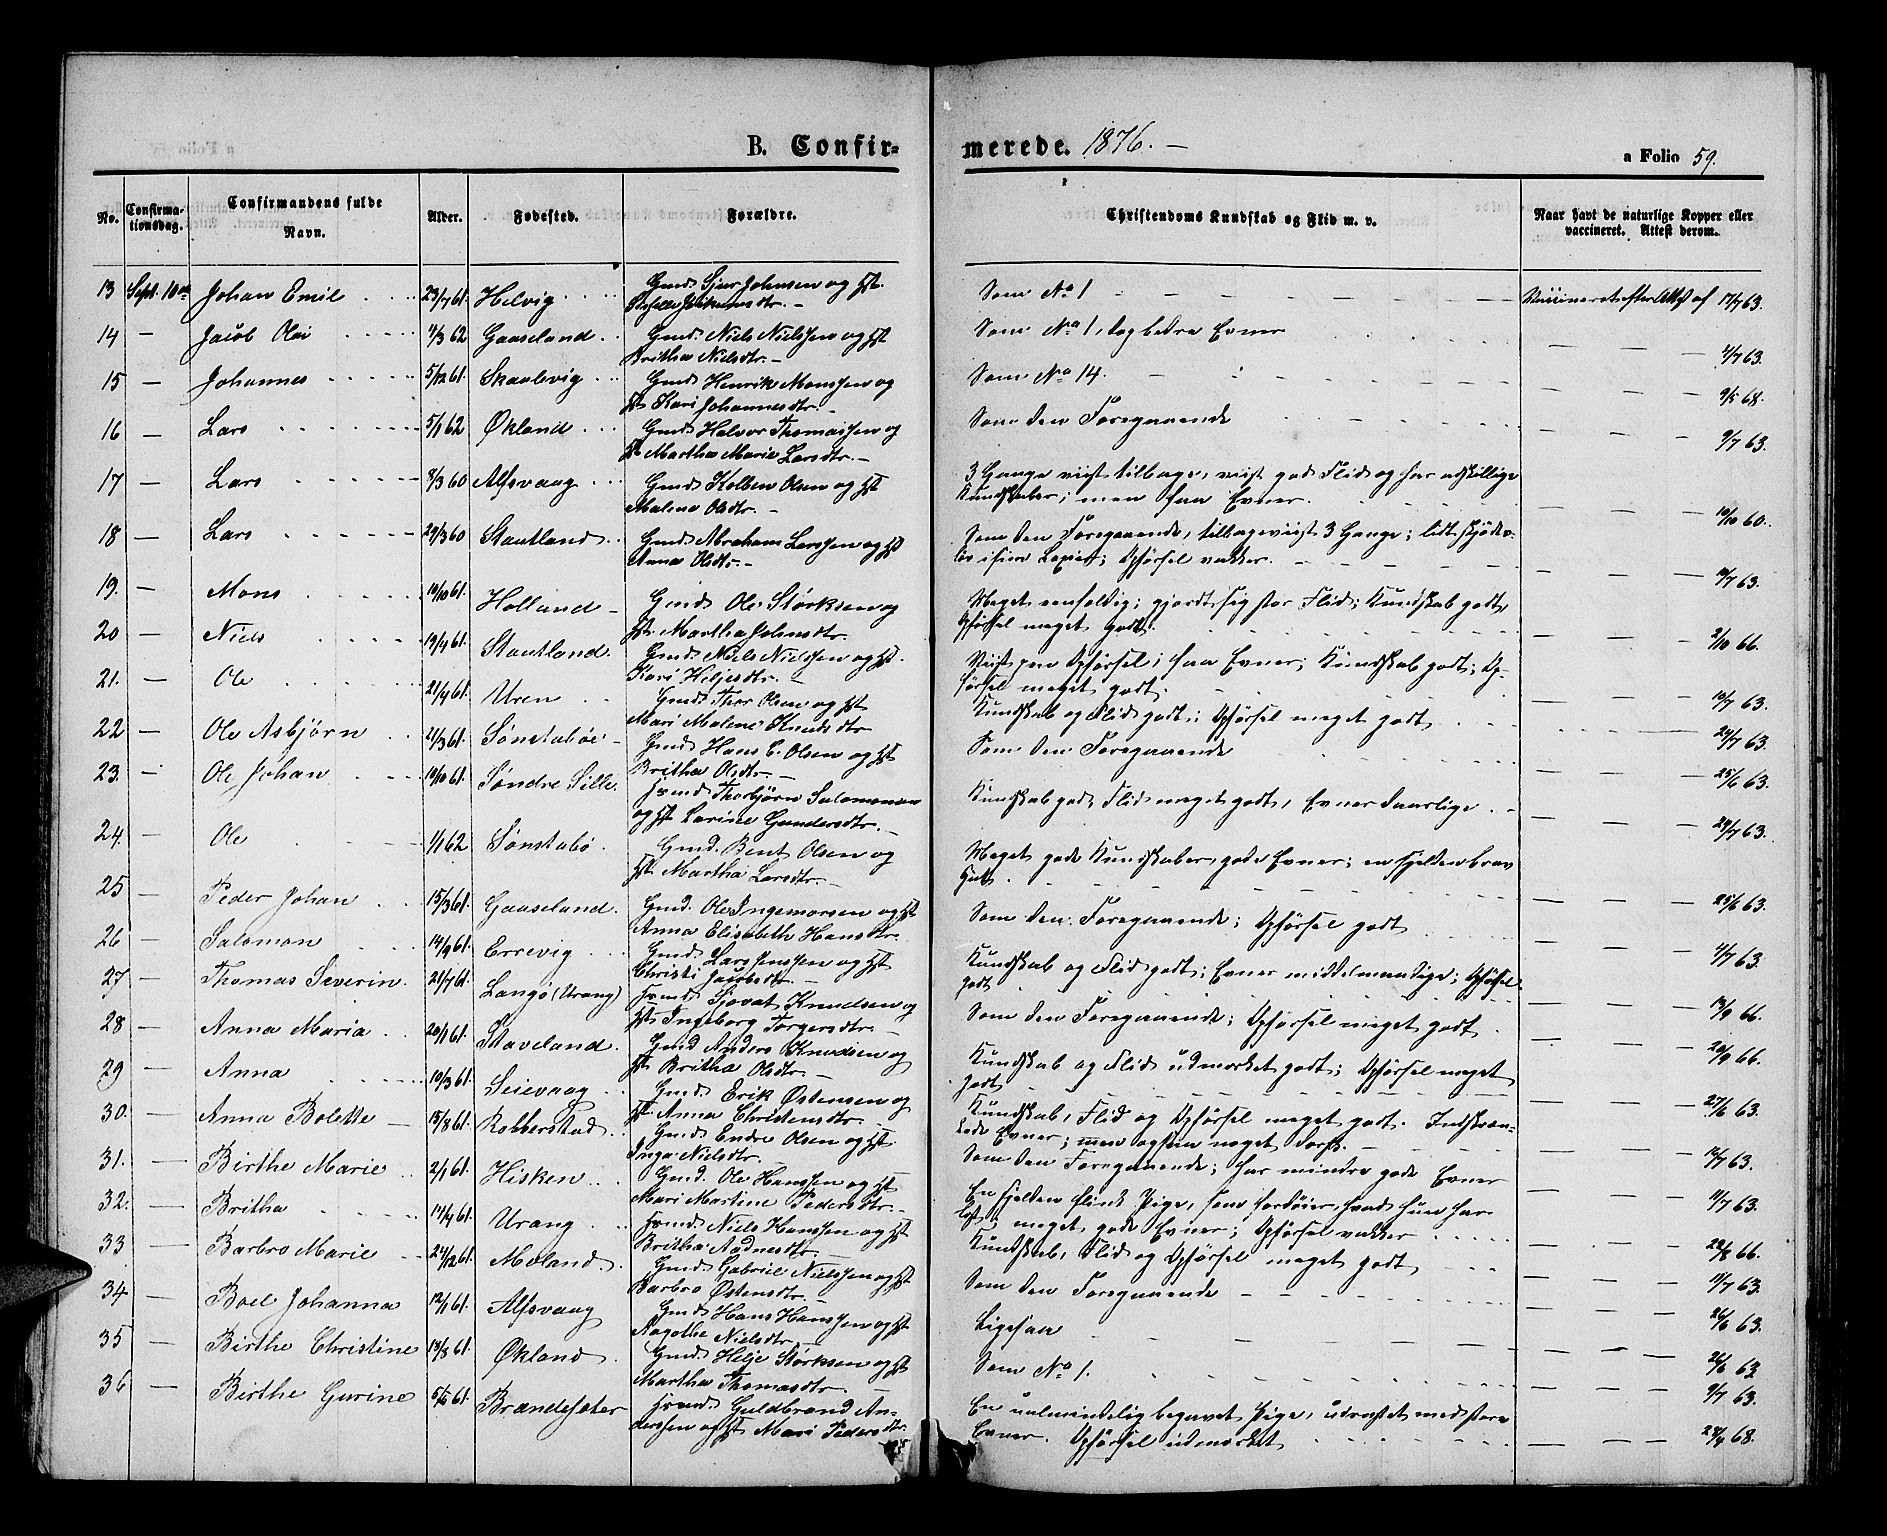 B. Confirmerede. 1876. —
a Folio 59.
No. Confirmationsdag. Confirmandens fulde Navn. Alder. Fødested. Forældre. Christendoms Kundskab og Flid m. v. Naar havt de naturlige Kopper eller vaccineret. Attest derom.
13 Sept. 10de Johan Emil 23/7 61. Helvig Gmd. Johnsen og Hst. Som No 1 Vaccineret efter Attest af 17/7 63.
14 — Jacob Olai 4/3 62 Gaaseland Gmd. Niels Nielssen og Hst Britha Nielsdtr. — Som No 1, dog bedre Evner 4/7 63.
15 — Johannes 5/12 61. Skaalevig Gmd. Henrik Monssen og Hst Kari Johannesdtr. — Som No 14. 9/5 68.
16 — Lars 5/1 62 Økland Gmd. Halvor Thomassen og Hst Martha Marie Larsdtr. — Som den Foregaaende 9/7 63.
17 — Lars 9/3 60 Alfsvaag Gmd. Kolben Olsen og Hst Malene Olsdtr. — 3 Gange viist tilbage, viist god Flid og har adskillige Kundskaber; men faa Evner. 10/10 60.
18 — Lars 29/3 60 Stautland Gmd. Abraham Larssen og Hst Anna Olsdtr. — Som den Foregaaende, tilbageviist 3 Gange; lidt skjødesløs i sine Lexier; Opførsel vakker. 10/7 63.
19. — Mons 10/10 61. Holland — Gmd. Ole Størksen og Hst. Martha Johnsdtr. Meget eenfoldig; gjort sig stor Flid; Kundskab godt, Opførsel meget godt. 2/10 66.
20 — Niels 19/4 61. Stautland. Gmd. Niels Nielssen og Hst. Kari Heljesdtr. — Viist pen Opførsel; faa Evner; Kundskab godt; Opførsel meget godt. 10/7 63.
21. — Ole 21/4 61. Uren Gmd. Thor Olsen og Hst Mari Malene Knudsdtr Kundskab og Flid godt; Opførsel meget godt 29/7 63.
22 — Ole Asbjørn 21/3 61. Sønstabøe — Gmd. Hans C. Olsen og Hst Britha Olsdtr. — Som den Foregaaende 25/6 63.
23. — Ole Johan 10/10 61. Søndre Sille. Gmd. Thorbjørn Salomonsen og Hst Larine Gundersdtr. — Kundskab godt Flid meget godt, Evner daarlige 29/7 63.
24. — Ole 1/1 62 Sønstabø. Gmd. Bent Olsen og Hst Martha Larsdtr. — Meget gode Kundskaber, gode Evner; en sjelden brav Gut. 25/6 63.
25 — Peder Johan 15/3 61. Gaaseland. Gmd. Ole Ingemorsen og Hst Anna Elisabeth Hansdtr. Som den Foregaaende; Opførsel godt 4/7 63.
26 — Salomon 14/9 61. Errevig Gmd. Lars Jenssen og Hst Christi Jacobsdtr. — Kundskab og Flid godt; Evner middelmaadige; Opførsel godt 13/9 66.
27 — Thomas Severin. 21/7 61. Langø (Urang) Gmd. Sjovat Knudsen og Hst. Ingeborg Torgersdtr. — Som den Foregaaende; Opførsel meget godt 20/9 66.
28 — Anna Maria 20/1 61. Staveland. Gmd Anders Knudsen og Hst Britha Olsdtr. — Kundskab og Flid udmærket godt; Opførsel meget godt 27/6 63.
29 — Anna 10/3 61. Seievaag Gmd. Erik Østensen og Hst Anna Christensdtr. — Kundskab, Flid og Opførsel meget godt. Indskrænkede Evner; men ogsaa meget 13/7 63.
30. — Anna Bolette — 15/8 61. Robberstad Gmd. Endre Olsen og Hst. Inga Nielsdtr. — Som den Foregaaende; har mindre gode Evner 11/7 63.
31. — Birthe Marie 2/1 61. Hisken Gmd. Ole Hanssen og Hst Mari Martine Pedersdtr. — En sjelden flink Pige, som hvad hun har læst; meget gode Evner; Opførsel vakker 22/8 66.
32. — Britha 14/4 61. Urang Gmd. Niels Hanssen og Hst Britha Aadnesdtr. — Kundskab, Flid og Opførsel meget godt 11/7 63.
33 — Barbro Marie 24/12 61. Moland Gmd. Gabriel Nielssen og Hst Barbro Østensdtr. — Som den Foregaaende 26/6 63.
34 — Boel Johanna 12/1 61. Alfsvaag Gmd. Hans Hanssen og Hst Aagothe Nielsdtr. Ligesaa 26/6 63
35 — Birthe Christine 13/8 61. Økland Gmd. Helje Størksen og Hst Martha Thomasdtr. — Som No 1. 9/7 63.
36 — Birthe Gurine 5/6 61. Brandesæter Gmd. Guldbrand Anderssen og Hst Mari Pedersdtr. En ualmindelig begavet Pige, udrustet med store Evner. Opførsel udmærket 28/4 68.